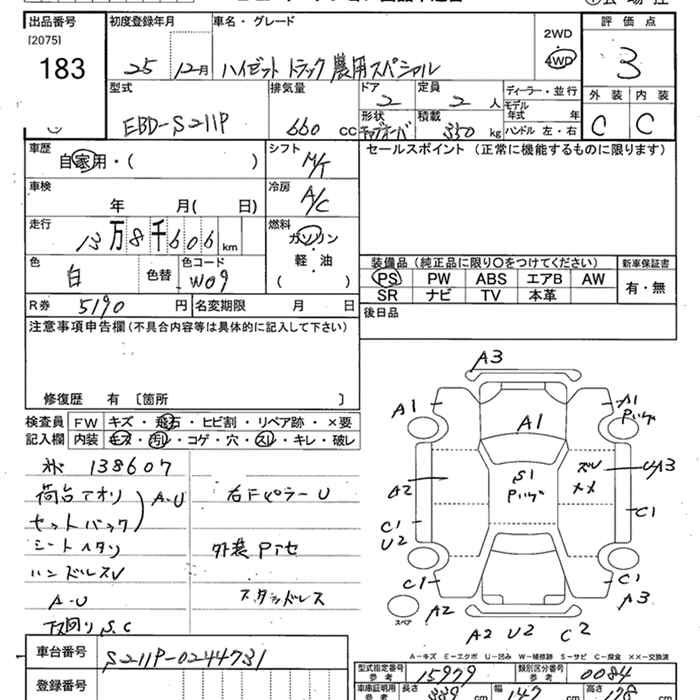 出品番号 初度登録年月 車名・グレード 評価点
[2075]
183
25 12月 ハイゼットトラック農用スペシャル
2WD
4WD
3
型式 排気量 ドア 定員 ディーラー・並行 外装 内装
EBD-S211P 660 cc 2 2 人
モデル年式 年
形状 積載 350 kg ハンドル 左・右
C C
車歴 自家用・( ) シフト M/T セールスポイント (正常に機能するものに限ります)
車検 年 月( 日) 冷房 A/C
走行 13万8千606 km 燃料 ガソリン
軽・油
( )
色 白 色替 色コード W09
装備品 (純正品に限り○をつけてください) 新車保証書
PS PW ABS エアB AW 有・無
SR ナビ TV 本革
R券 5190 円 名変期限 月 日
後日品
注意事項申告欄(不具合内容等は具体的に記入して下さい)
修復歴 有 〔箇所 〕
検査員 FW キズ・飛石・ヒビ割・リペア跡・×要
記入欄 内装 キズ・汚れ・コゲ・穴・スレ・キレ・破レ
138607
荷台アオリ A・U 右Fピラー U
セットバック
シートヘタリ 外装Pアセ
ハンドルスレ
A-U スタッドレス
下回りS.C
A3
A1 A1
A1
S1
A2 UA3
C1 C1
U2
C1 C1
A2 A3
スペア
A2 U2 C2
A-キズ E-エクボ U-凹み W-補修跡 S-サビ C-腐食 XX-交換済
車台番号 S211P-0244731
型式指定番号 参考 15979 類別区分番号 参考 0084
登録番号
車庫証明用 参考 長さ 339 cm 幅 147 cm 高さ 178 cm